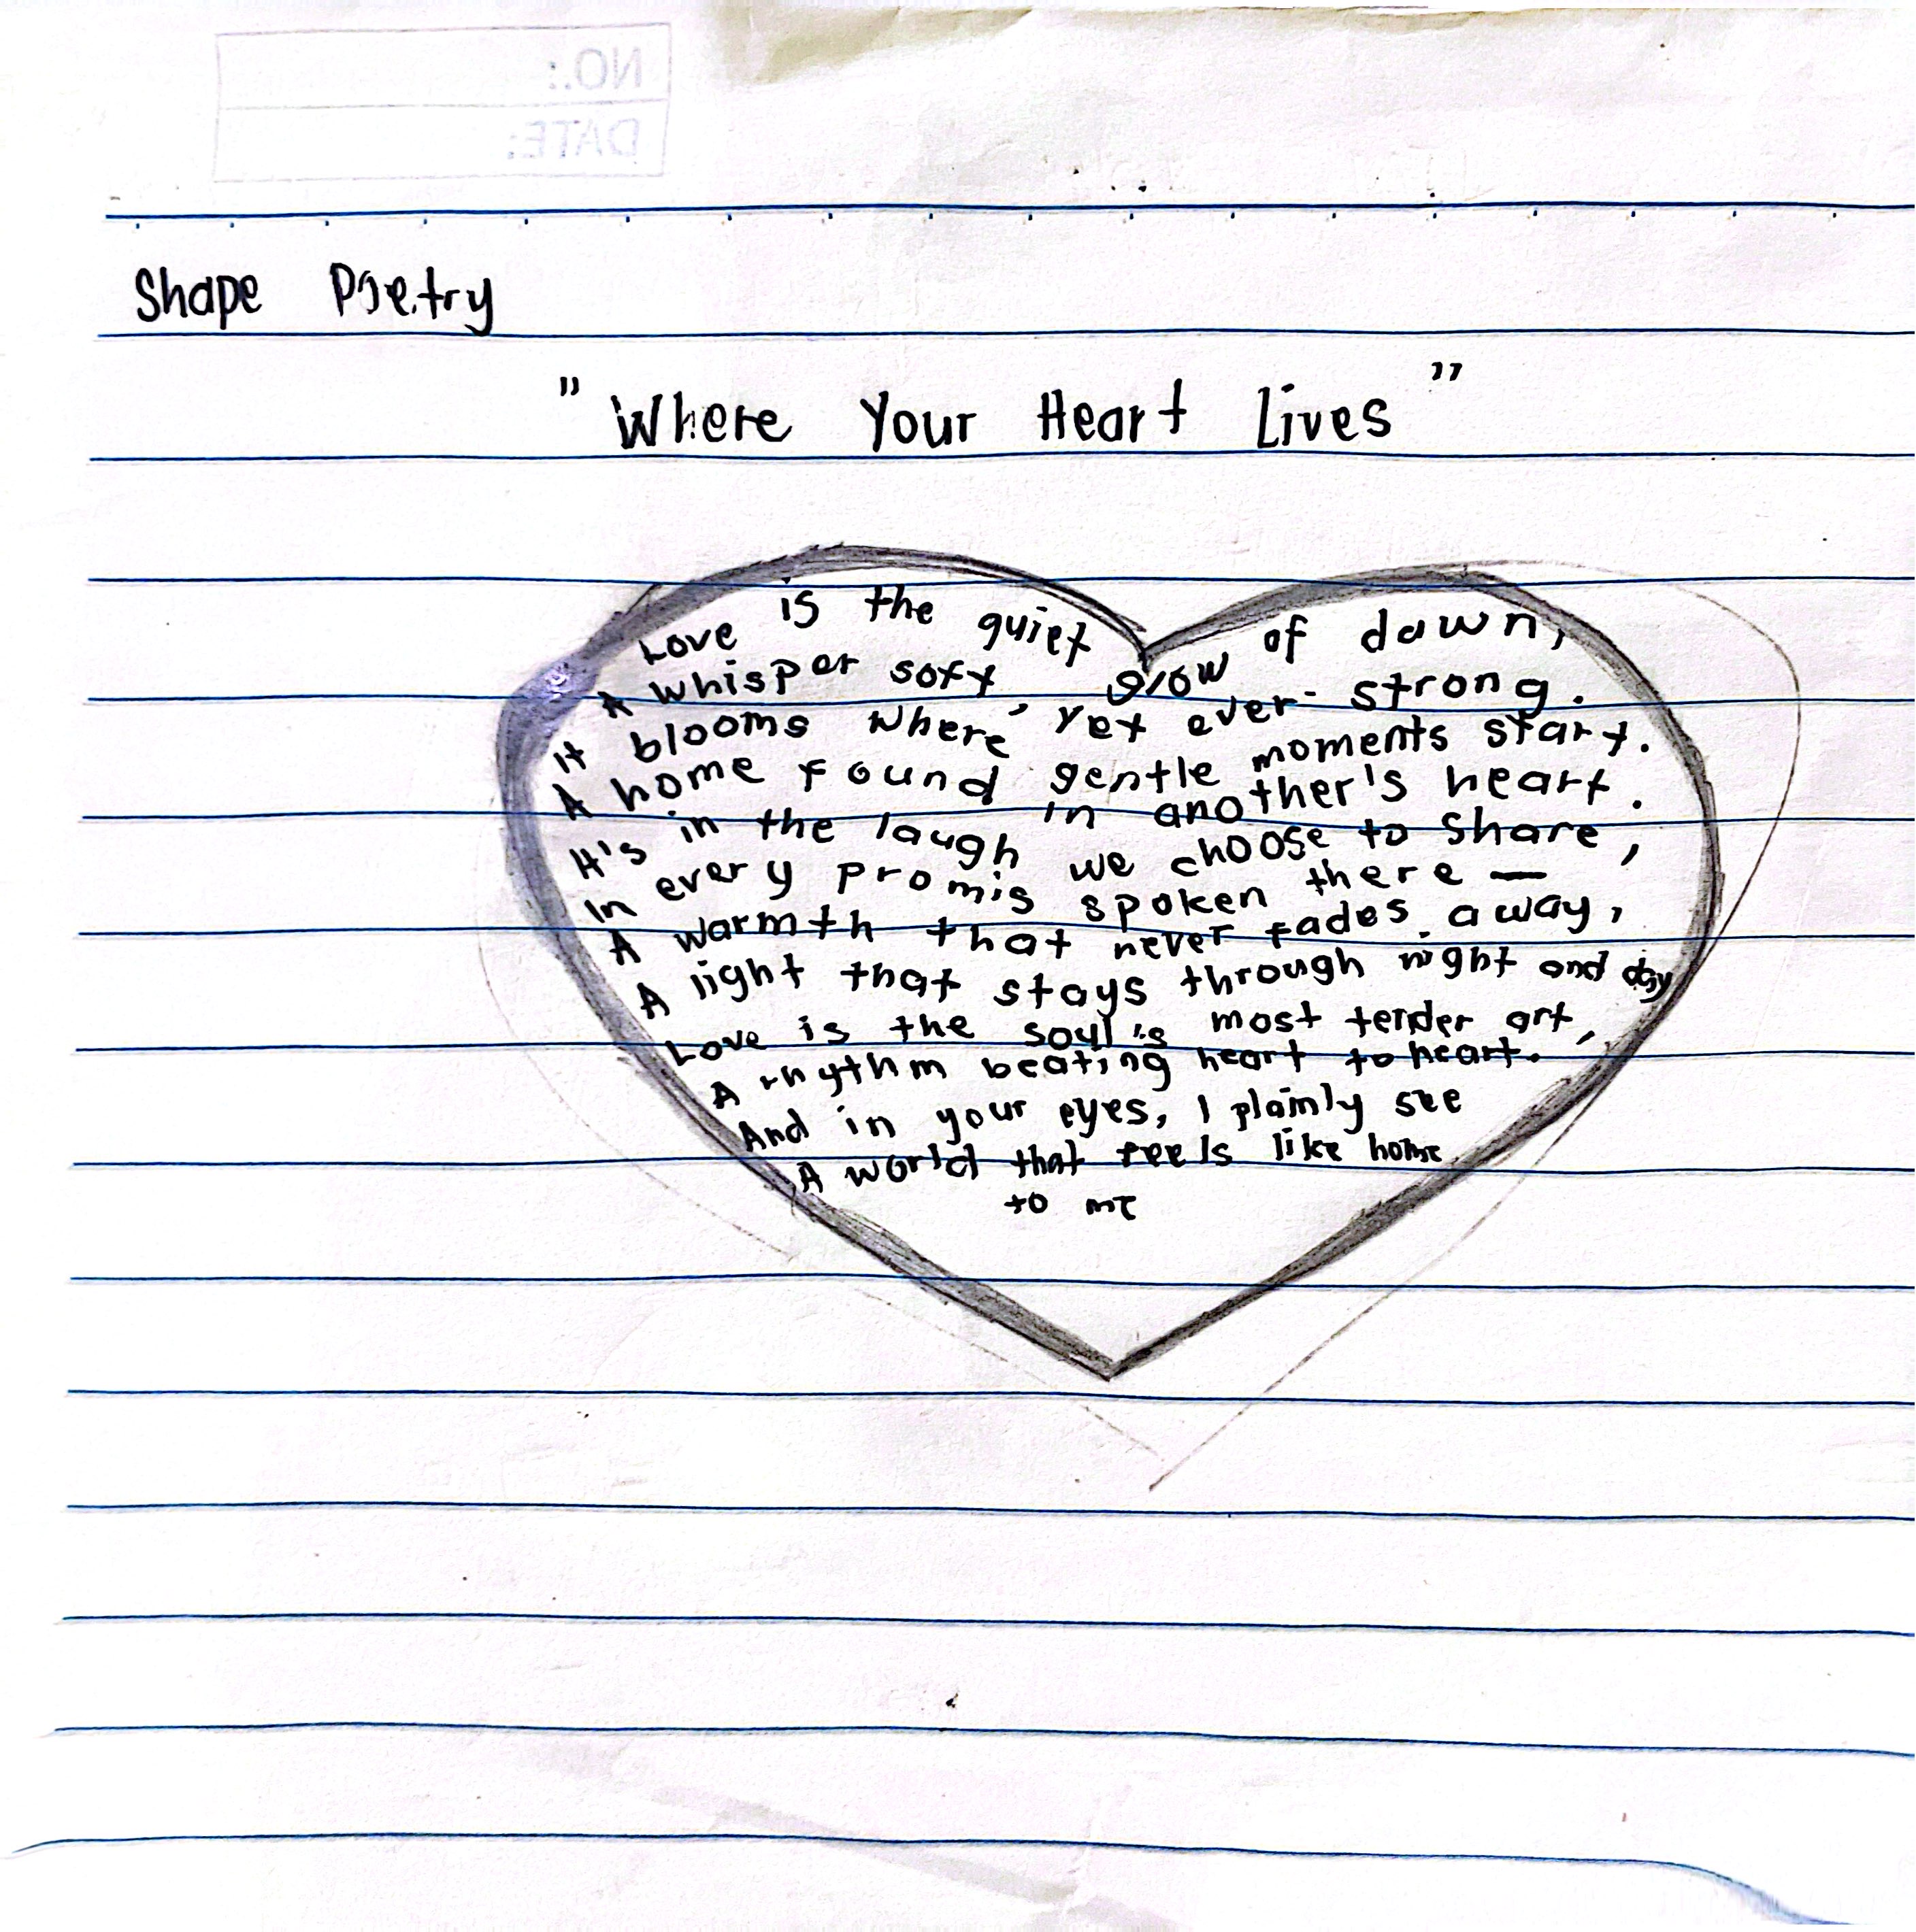 NO.:
DATE:
Shape Poetry
"Where Your Heart Lives"
Love is the quiet glow of dawn,
A whisper soft, yet ever-strong.
It blooms where gentle moments start.
A home found in another's heart.
It's in the laugh we choose to share,
In every promis spoken there —
A warmth that never fades away,
A light that stays through night and day
Love is the soul's most tender art,
A rhythm beating heart to heart.
And in your eyes, I plainly see
A world that feels like home
to me